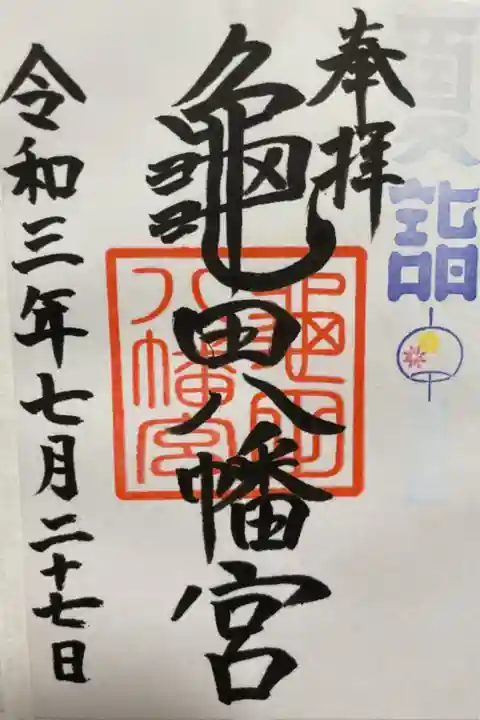 夏詣
奉拝
龜田八幡宮
亀田八幡宮
令和三年七月二十七日